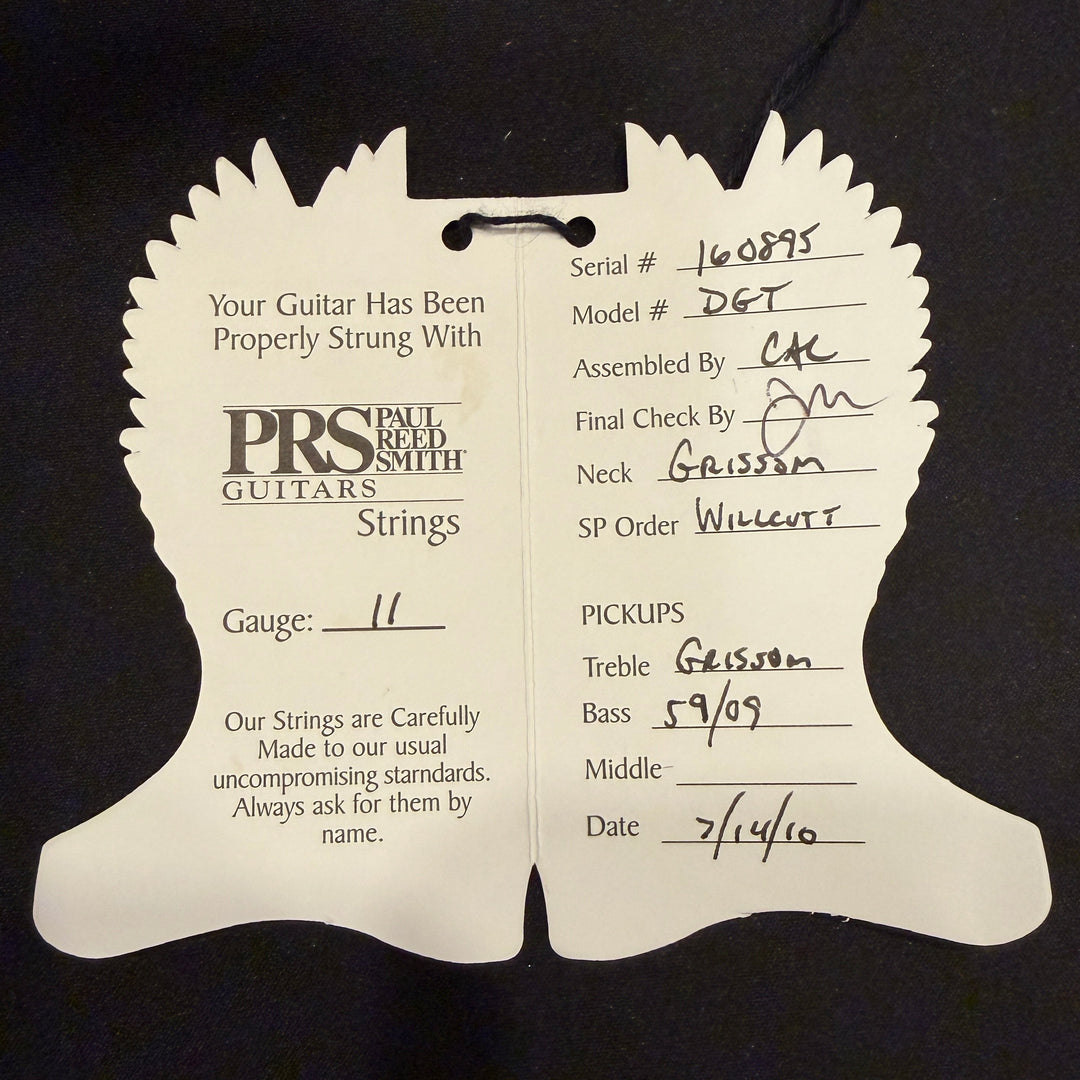 Your Guitar Has Been
Properly Strung With
PRS PAUL
REED
SMITH
GUITARS
Strings
Gauge: 11
Our Strings are Carefully
Made to our usual
uncompromising starndards.
Always ask for them by
name.
Serial # 160895
Model # DGT
Assembled By CAC
Final Check By
Neck GRISSOM
SP Order WILLCUTT
PICKUPS
Treble GRISSOM
Bass 59/09
Middle
Date 7/14/10